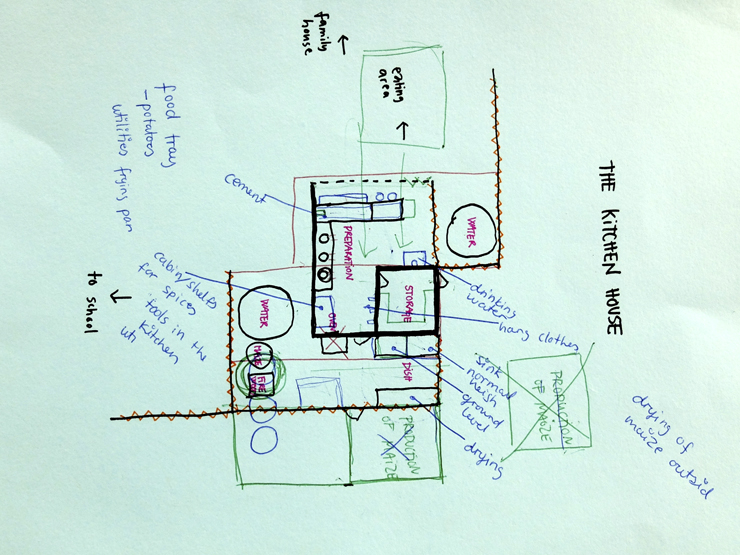 THE KITCHEN HOUSE
drying of
maize outsid
PRODUCTION
OF MAIZE
WATER
drinking
water
hang clothes
sink
normal
heigh
ground
level
drying
eating
area
family
house
STORAGE
DISH
PRODUCTION
OF MAIZE
PREPARATION
OVEN
cement
WATER
MAIZE
FIRE
WOOD
cabin/shelfs
for spices
tools in the
kitchen
uti
food tray
- potatoes
utilities frying pan
to school